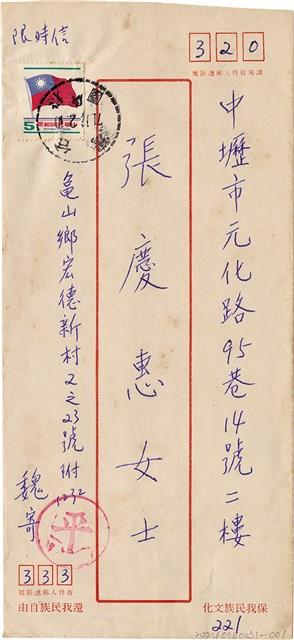 限時信
320
請寫收件人郵遞區號
中壢市元化路95巷14號二樓
張慶惠女士
5
龜山鄉宏德新村又之23號附1232
魏寄
平
333
寄件人郵遞區號
保我民族文化
還我民族自由
221